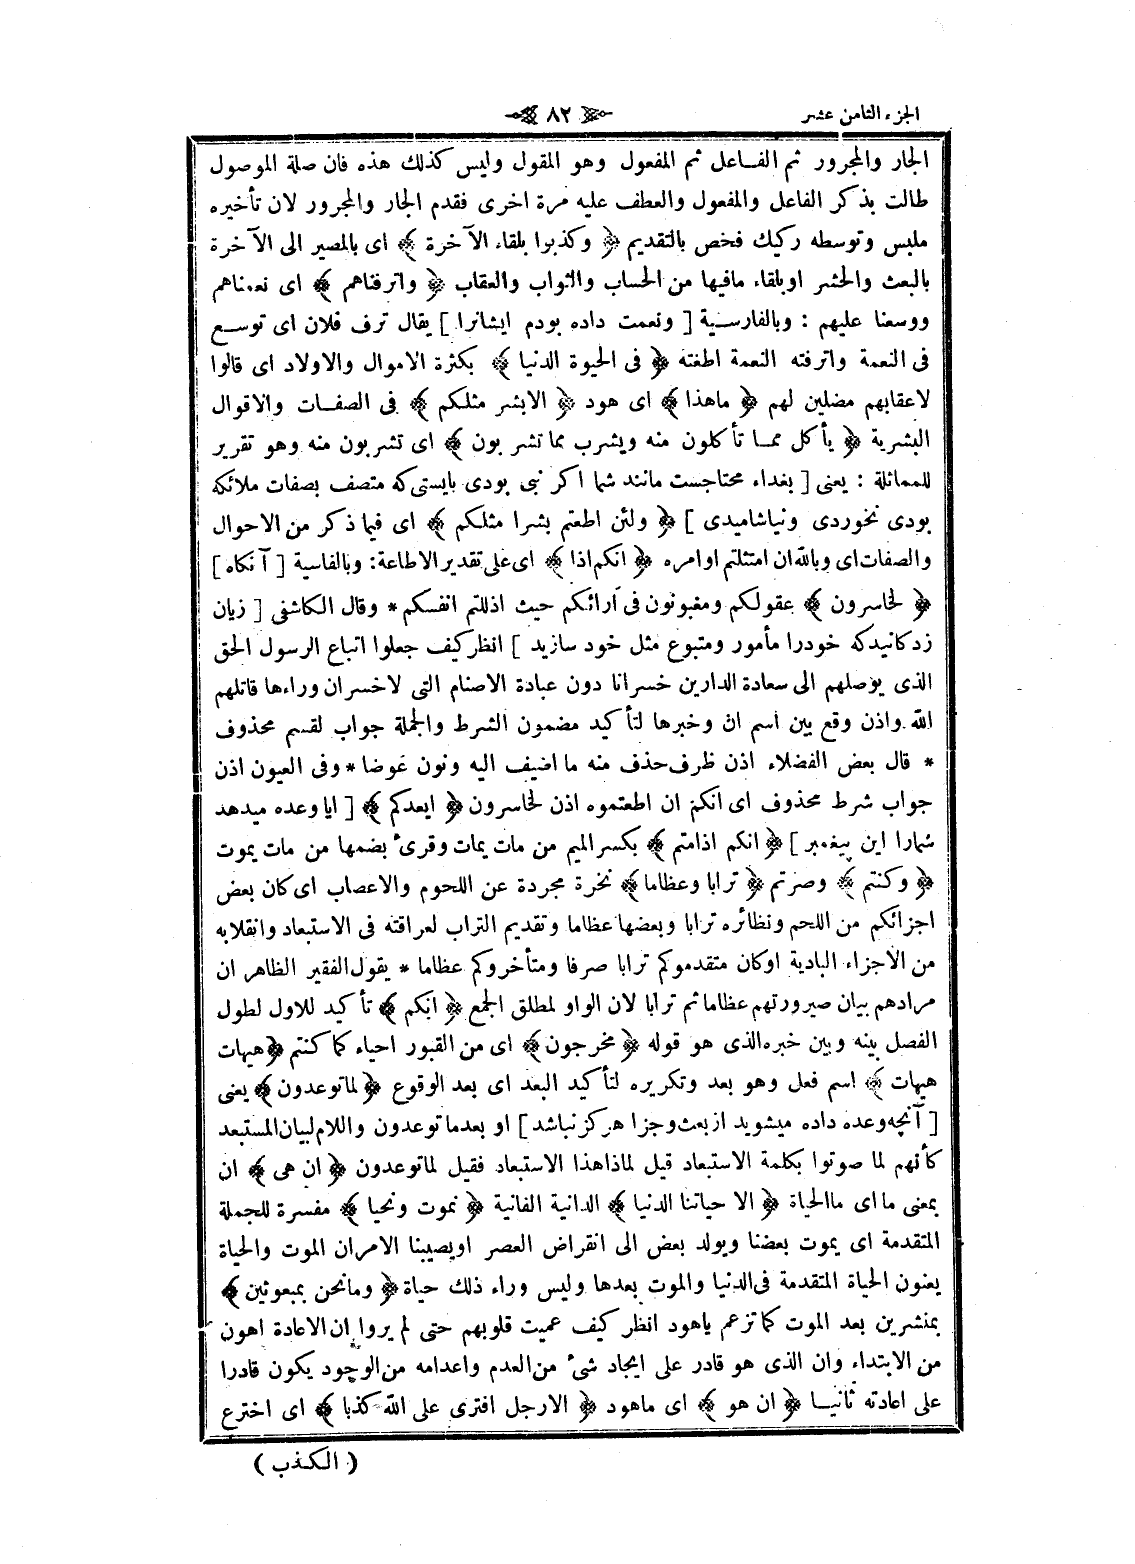 الجزء الثامن عشر
٨٢
الجار والمجرور ثم الفاعل ثم المفعول وهو المقول وليس كذلك هذه فان صلة الموصول
طالت بذكر الفاعل والمفعول والعطف عليه مرة اخرى فقدم الجار والمجرور لان تأخيره
ملبس وتوسطه ركيك فخص بالتقديم ﴿ وكذبوا بلقاء الآخرة ﴾ اى بالمصير الى الآخرة
بالبعث والحشر اوبلقاء مافيها من الحساب والثواب والعقاب ﴿ واترفناهم ﴾ اى نعمناهم
ووسعنا عليهم : وبالفارسية [ ونعمت داده بودم ايشانرا ] يقال ترف فلان اى توسع
فى النعمة واترفته النعمة اطغته ﴿ فى الحيوة الدنيا ﴾ بكثرة الاموال والاولاد اى قالوا
لاعقابهم مضلين لهم ﴿ ماهذا ﴾ اى هود ﴿ الابشر مثلكم ﴾ فى الصفات والاقوال
البشرية ﴿ يأكل مما تأكلون منه ويشرب مماتشربون ﴾ اى تشربون منه وهو تقرير
للمماثلة : يعنى [ بغداء محتاجست مانند شما اكر نبى بودى بايستى كه متصف بصفات ملائكه
بودى نخوردى ونياشاميدى ] ﴿ ولئن اطعتم بشرا مثلكم ﴾ اى فيما ذكر من الاحوال
والصفات اى وبالله ان امتثلتم اوامره ﴿ انكم اذا ﴾ اى على تقدير الاطاعة : وبالفاسية [ آنكاه ]
﴿ لخاسرون ﴾ عقولكم ومغبونون فى آرائكم حيث اذللتم انفسكم * وقال الكاشفى [ زيان
زدكانيدكه خودرا مأمور ومتبوع مثل خود سازيد ] انظر كيف جعلوا اتباع الرسول الحق
الذى يوصلهم الى سعادة الدارين خسرانا دون عبادة الاصنام التى لاخسران وراءها قاتلهم
الله واذن وقع بين اسم ان وخبرها لتأكيد مضمون الشرط والجملة جواب لقسم محذوف
* قال بعض الفضلاء اذن ظرف حذف منه ما اضيف اليه ونون عوضا * وفى العيون اذن
جواب شرط محذوف اى انكم ان اطعتموه اذن لخاسرون ﴿ ايعدكم ﴾ [ ايا وعده ميدهد
شمارا اين پيغمبر ] ﴿ انكم اذامتم ﴾ بكسر الميم من مات يمات وقرئ بضمها من مات يموت
﴿ وكنتم ﴾ وصرتم ﴿ ترابا وعظاما ﴾ نخرة مجردة عن اللحوم والاعصاب اى كان بعض
اجزائكم من اللحم ونظائره ترابا وبعضها عظاما وتقديم التراب لعراقته فى الاستبعاد وانقلابه
من الاجزاء البادية اوكان متقدموكم ترابا صرفا ومتأخروكم عظاما * يقول الفقير الظاهر ان
مرادهم بيان صيرورتهم عظاما ثم ترابا لان الواو لمطلق الجمع ﴿ انكم ﴾ تأكيد للاول لطول
الفصل بينه وبين خبره الذى هو قوله ﴿ مخرجون ﴾ اى من القبور احياء كما كنتم ﴿ هيهات
هيهات ﴾ اسم فعل وهو بعد وتكريره لتأكيد البعد اى بعد الوقوع ﴿ لماتوعدون ﴾ يعنى
[ آنچه وعده داده ميشويد از بعث وجزا هركز نباشد ] او بعد ماتوعدون واللام لبيان المستبعد
كأنهم لما صوتوا بكلمة الاستبعاد قيل لماذا هذا الاستبعاد فقيل لماتوعدون ﴿ ان هى ﴾ ان
بمعنى ما اى ماالحياة ﴿ الا حياتنا الدنيا ﴾ الدانية الفانية ﴿ نموت ونحيا ﴾ مفسرة للجملة
المتقدمة اى يموت بعضنا ويولد بعض الى انقراض العصر اويصيبنا الامران الموت والحياة
يعنون الحياة المتقدمة فى الدنيا والموت بعدها وليس وراء ذلك حياة ﴿ ومانحن بمبعوثين ﴾
بمنشرين بعد الموت كما تزعم ياهود انظر كيف عميت قلوبهم حتى لم يروا ان الاعادة اهون
من الابتداء وان الذى هو قادر على ايجاد شئ من العدم واعدامه من الوجود يكون قادرا
على اعادته ثانيا ﴿ ان هو ﴾ اى ماهود ﴿ الارجل افترى على الله كذبا ﴾ اى اخترع
( الكذب )